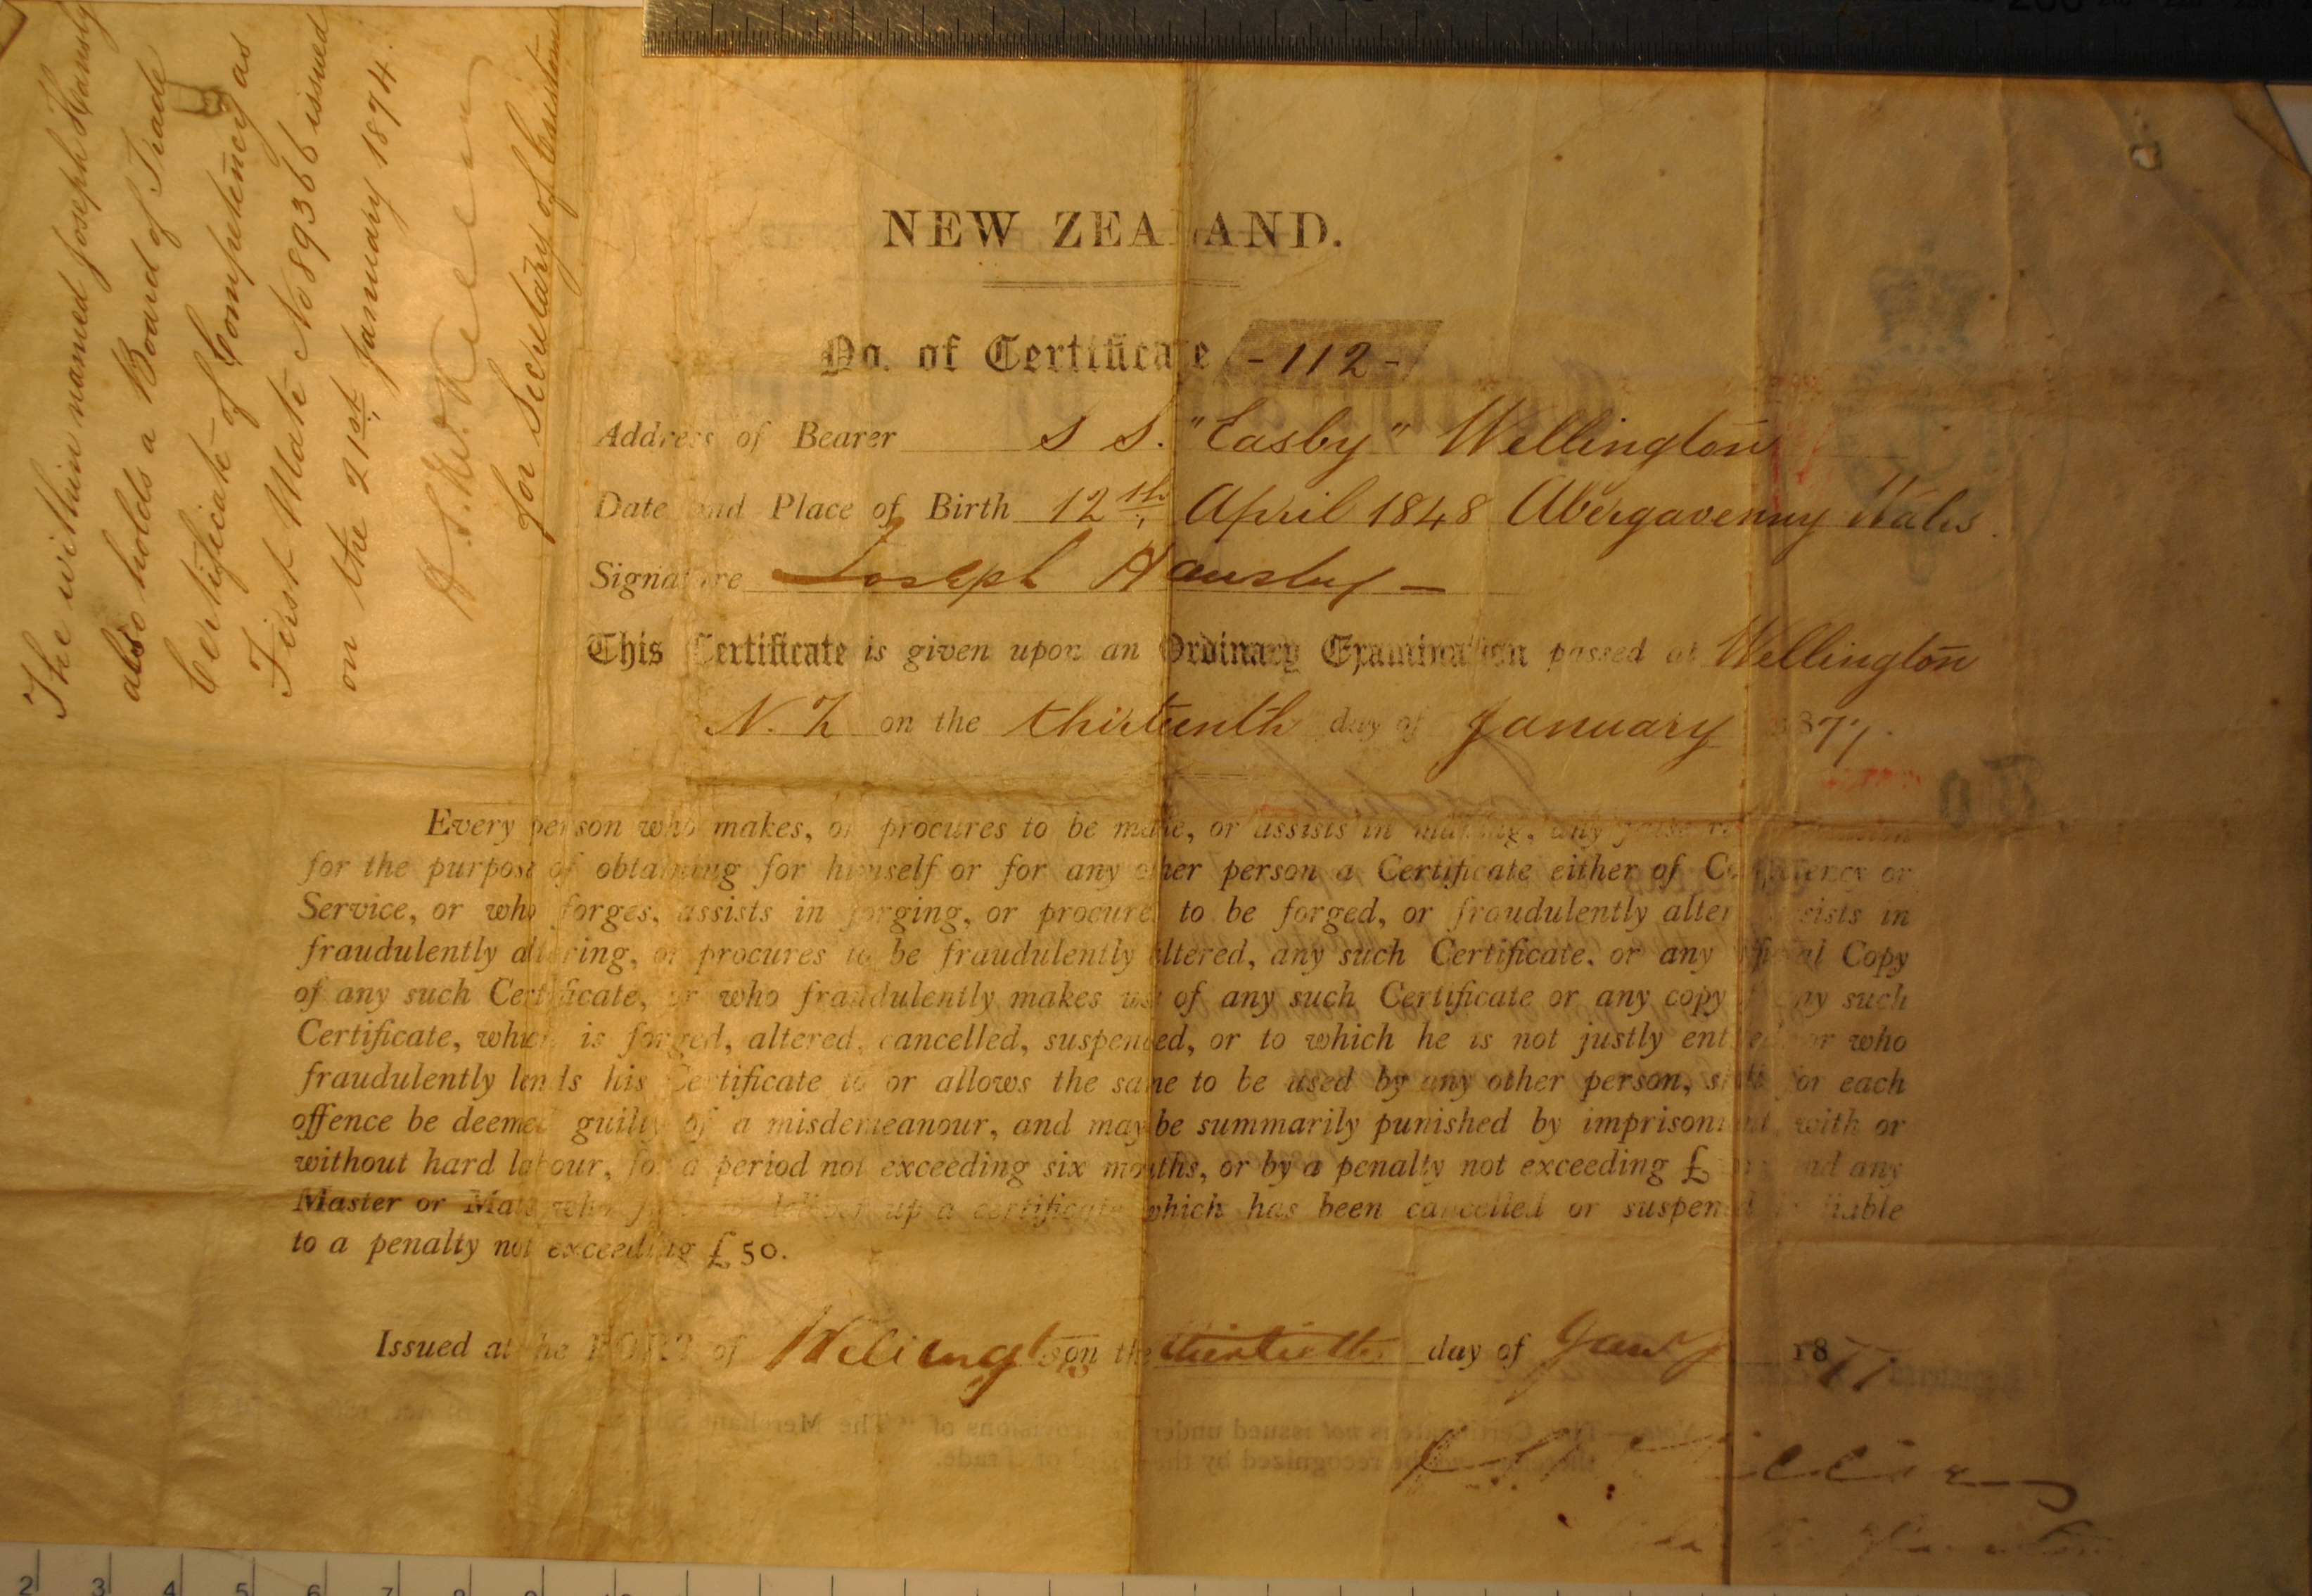 The within named Joseph Hansby
also holds a Board of Trade
Certificate of Competency as
First Mate No 89366 issued
on the 21st January 1874.
for Secretary of Customs
NEW ZEALAND.
No. of Certificate -112-
Address of Bearer S S. "Easby" Wellington
Date and Place of Birth 12th April 1848 Abergavenny Wales
Signature Joseph Hansby
This Certificate is given upon an Ordinary Examination passed at Wellington
N. Z on the thirteenth day of January 1877.
Every person who makes, or procures to be made, or assists in making, any false representation
for the purpose of obtaining for himself or for any other person a Certificate either of Competency or
Service, or who forges, assists in forging, or procures to be forged, or fraudulently alters, assists in
fraudulently altering, or procures to be fraudulently altered, any such Certificate, or any official Copy
of any such Certificate, or who fraudulently makes use of any such Certificate or any copy of any such
Certificate, which is forged, altered, cancelled, suspended, or to which he is not justly entitled, or who
fraudulently lends his Certificate to or allows the same to be used by any other person, shall for each
offence be deemed guilty of a misdemeanour, and may be summarily punished by imprisonment, with or
without hard labour, for a period not exceeding six months, or by a penalty not exceeding £ and any
Master or Mate who fails to deliver up a certificate which has been cancelled or suspended is liable
to a penalty not exceeding £50.
Issued at the PORT of Wellington on the thirtieth day of Jany 1877